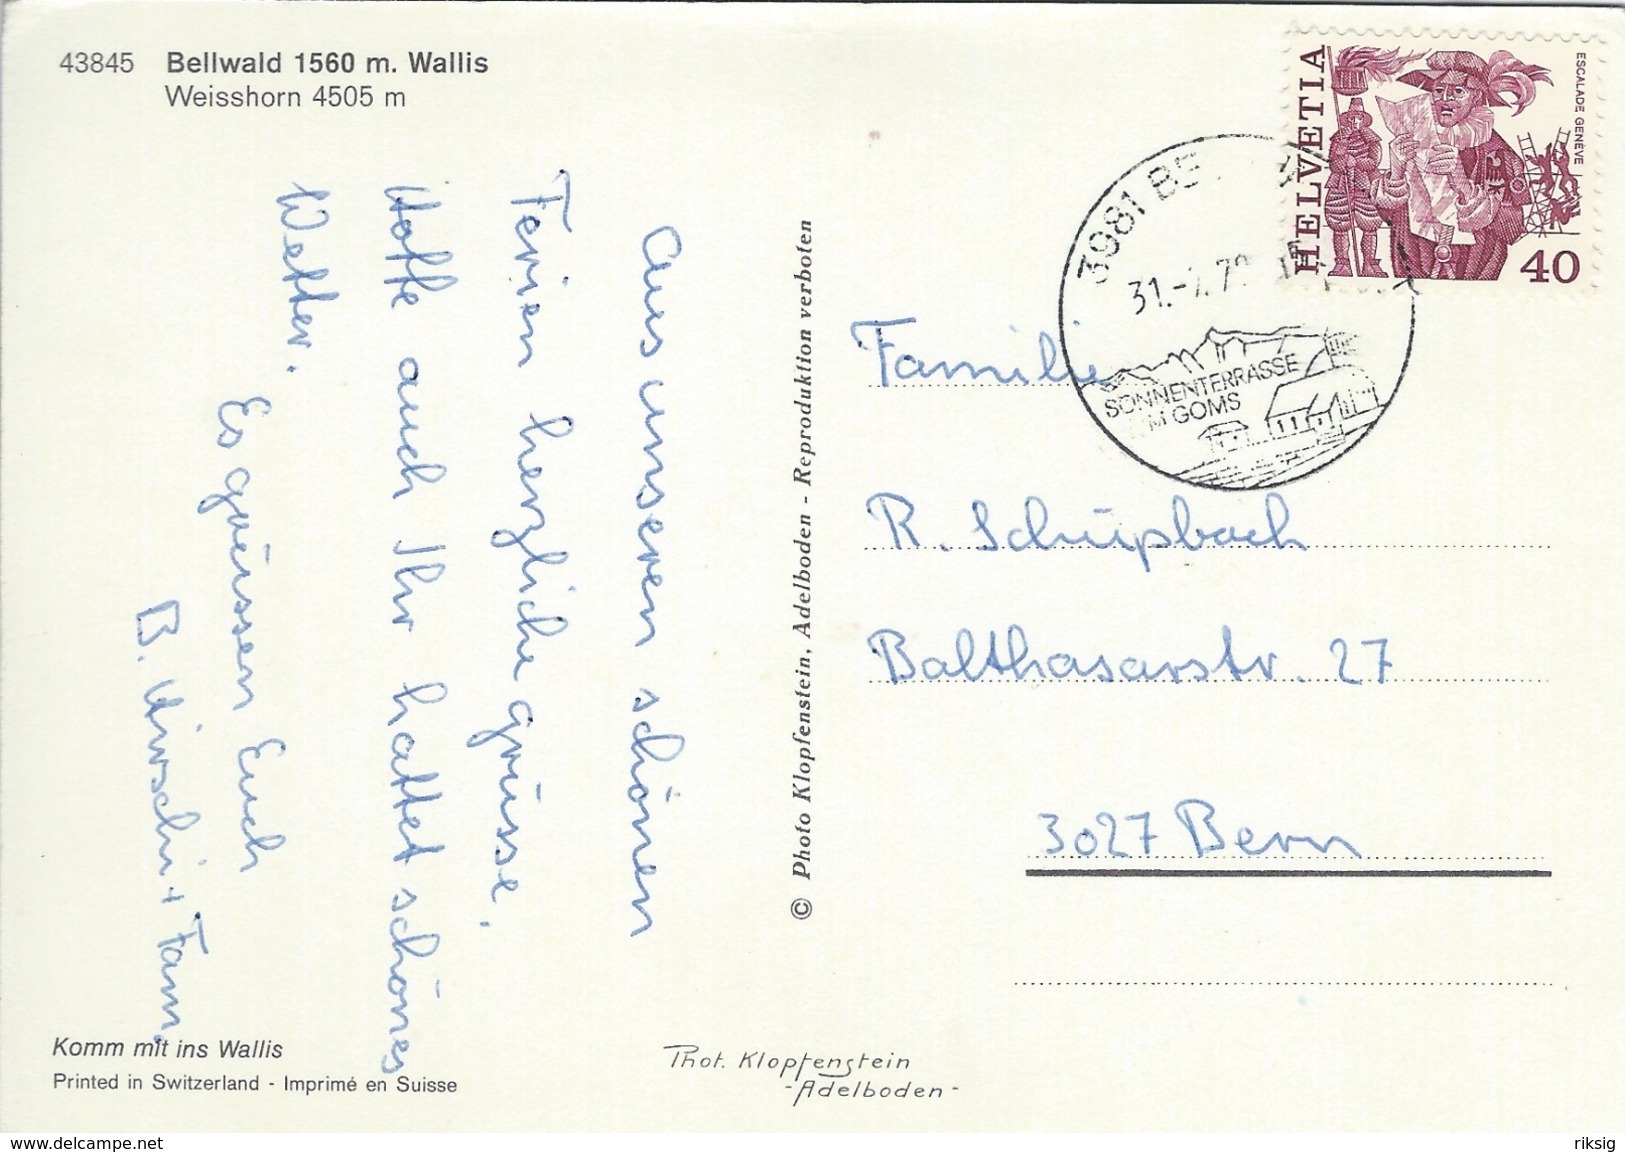 43845 Bellwald 1560 m. Wallis
Weisshorn 4505 m
Aus unseren schönen
Ferien herzliche grüsse.
Hoffe auch Ihr hattet schönes
Wetter.
Es grüssen Euch
B. Hirschi + Fam.
Komm mit ins Wallis
Printed in Switzerland - Imprimé en Suisse
© Photo Klopfenstein, Adelboden - Reproduktion verboten
Phot. Klopfenstein
- Adelboden -
HELVETIA
ESCALADE GENÈVE
40
3981 BE
31.-
SONNENTERRASSE
IM GOMS
Familie
R. Schüpbach
Balthasarstr. 27
3027 Bern
www.delcampe.net
riksig